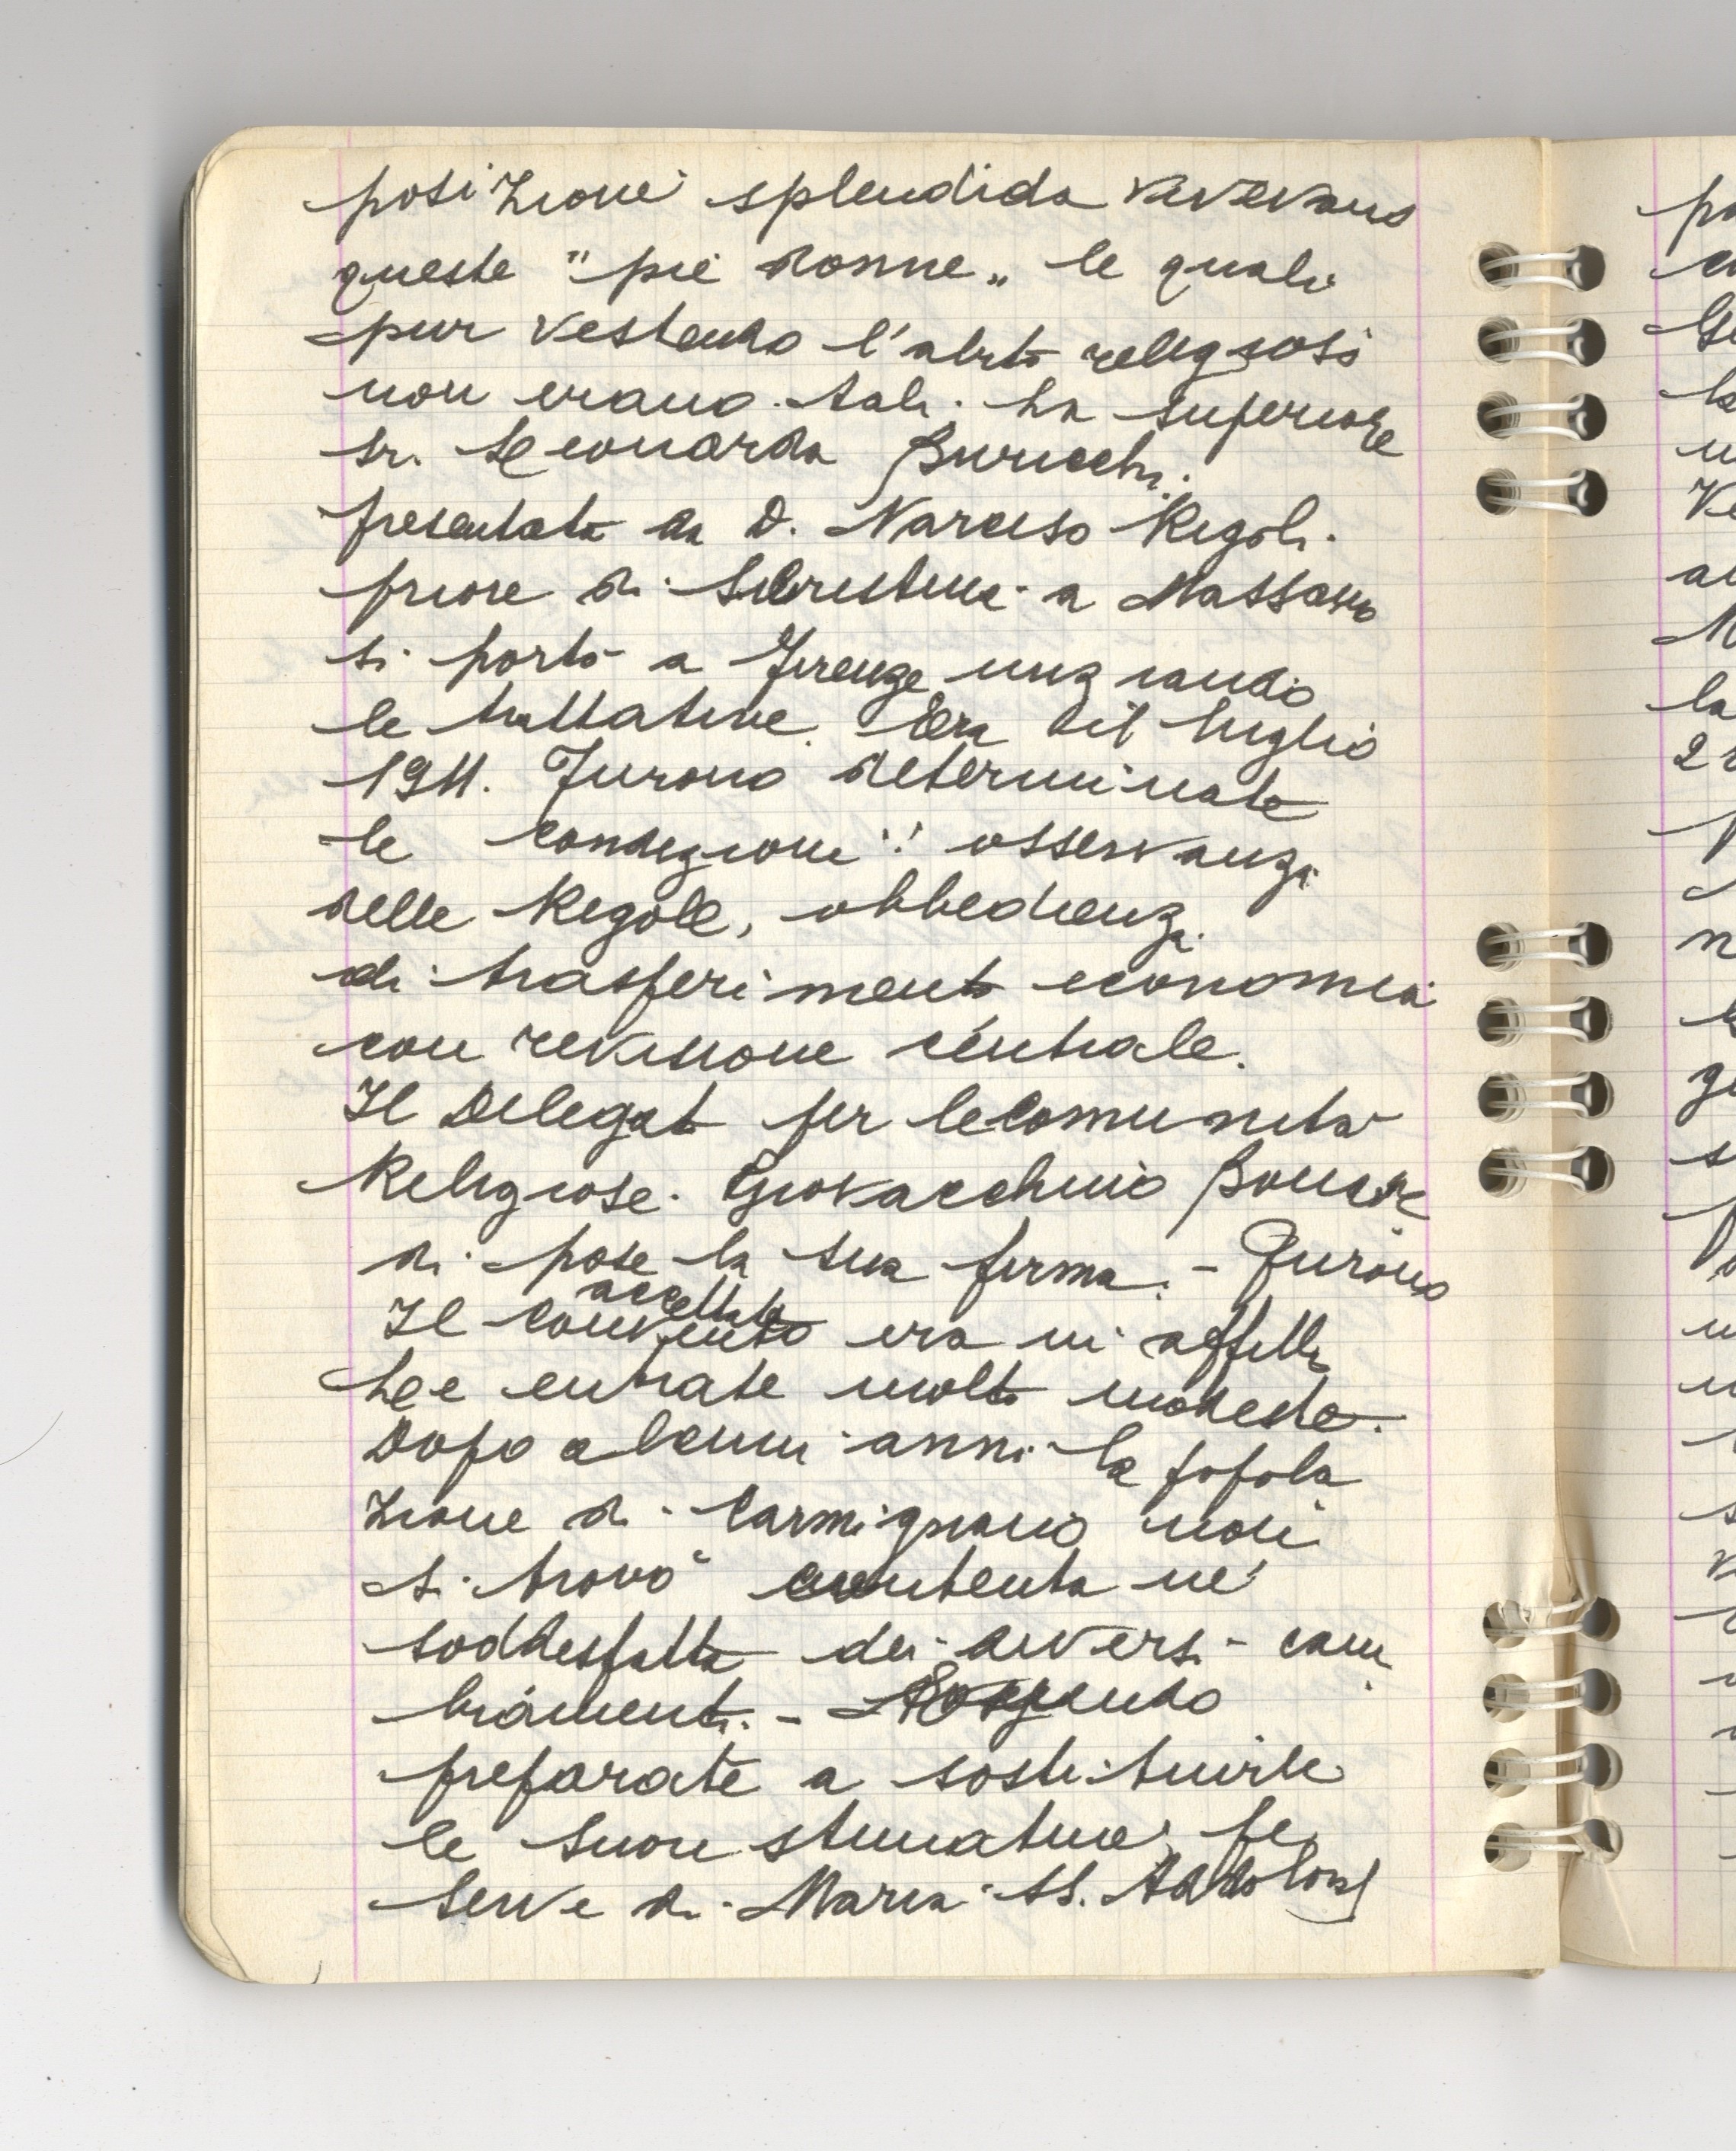 posizione splendida vivevano
queste "pie donne„ le quali
pur vestendo l'abito religioso
non erano tali. La superiora
sr. Leonarda Buricchi
presentata da D. Narciso Rigoli
priore di a
si portò a Firenze iniziando
le trattative. Era il luglio
1911. Furono determinate
le condizioni: osservanza
delle Regole, obbedienza
di trasferimento economia
con revisione centrale.
Il Delegato per le Comunità
Religiose. Giovacchino Bonar
di pose la sua firma. - Furono
accettate
Il convento era in affitto
Le entrate molto modeste.
Dopo alcuni anni la popola
zione di Carmignano non
si trovò contenta nè
soddisfatta dei diversi cam
biamenti. -
preparate a sostituirle
le Suore stimatine, le
Serve di Maria SS. Addolorata
pa
la
2